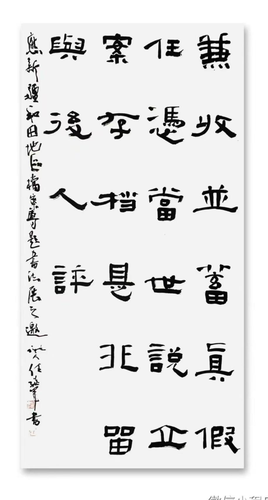 兼收並蓄真假
任憑當世說立
案存档是非留
與後人評
應新疆和田地區檔案專題書法展之邀 任 書